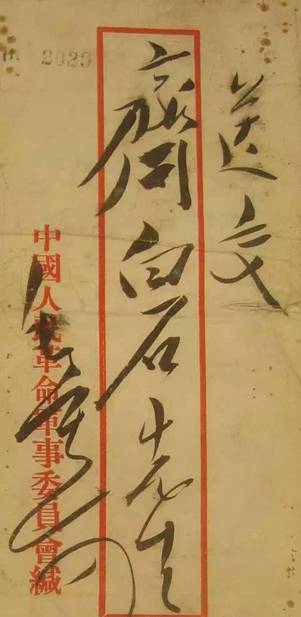 送交
齊白石先生
中國人民革命軍事委員會緘